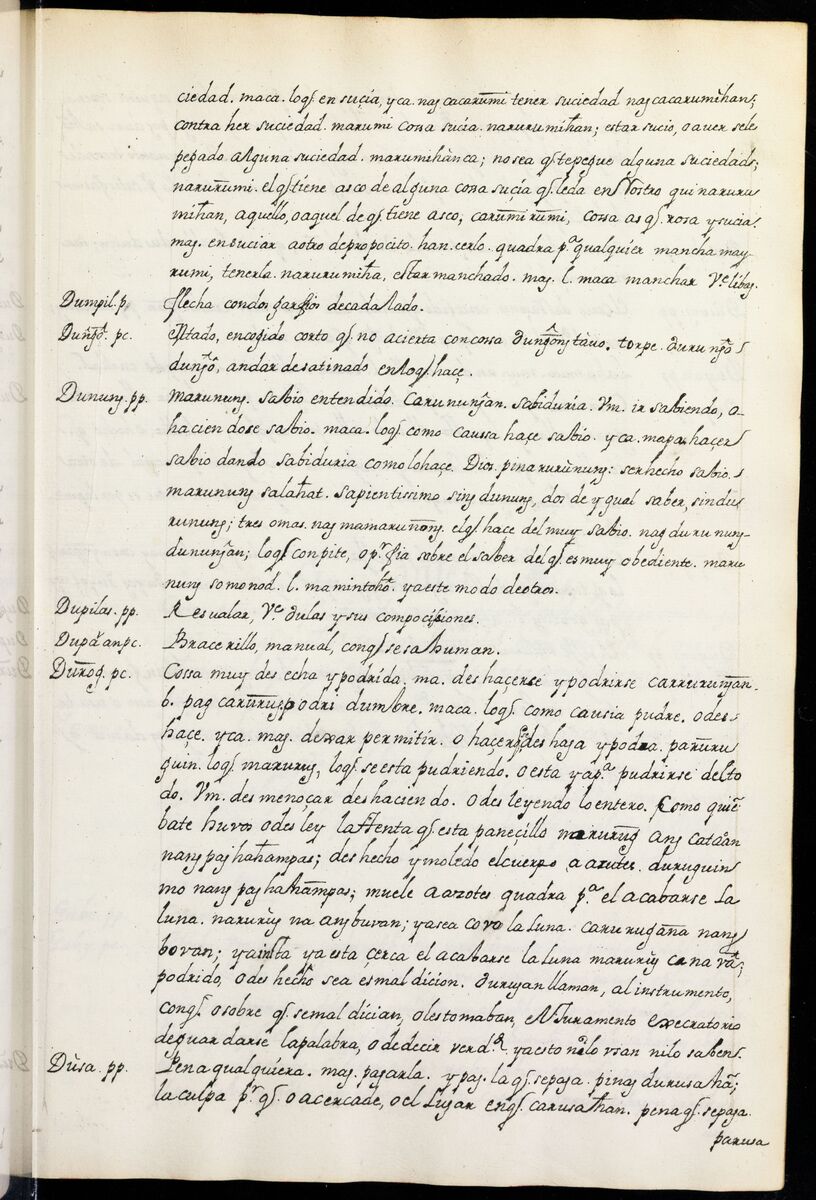 ciedad. maca. loq̃ en suçia, y ca. nag cacarumi tener suciedad nag cacarumihan;
contra her suciedad. marumi cosa sucia. narurumihan; estar sucio, o aver sele
pegado alguna suciedad. marumihanca; no sea q̃ te pegue alguna suciedad;
narurumi. el q̃ tiene asco de alguna cosa suçia q̃ le da en Rostro quinaruru
mihan, aquello, o aquel de q̃ tiene asco, carumirumi, cossa as q̃ rosa y sucia.
mag. ensuciar a otro de proposito. han. cerlo. quadra pᵃ qualquier mancha may,
rumi, tenerla. narurumiha, estar manchado. mag. l. maca manchar Vᵉ libag.
Dumpil. p. flecha con dos garfios de cada lado.
Dungô. pc. Atado, encogido corto q̃ no acierta con cossa dungong tàuo. torpe. durungo
dungô, andar desatinado en loq̃ haçe.
Dunung. pp. Marunung. sabio entendido. Carunungan. sabiduria. Vm. ir sabiendo, o
haciendose sabio. maca. loq̃ como caussa haçe sabio. y ca. mapa haçer
sabio dando sabiduria como lo haçe. Dios. pinarurùnung: ser hecho sabio.
marunung salahat. sapientissimo sing dunung, dos de ygual saber, sindu
runung; tres o mas. nag mamarunong. el q̃ hace del muy sabio. nag durunung
dunungan; loq̃ conpite, o pʳfia sobre el saber del q̃ es muy obediente. maru
nung somonod. l. mamintohô yaeste modo de otros.
Dupilas. pp. Resualar, Vᵉ. dulas y sus composiciones.
Dupà an pc. Bracerillo, manual, con q̃ se sahuman.
Durog. pc. Cossa muy des echa y podrida. ma. deshaçerse y podrirse carurugan.
b. pag carurug podridumbre. maca. loq̃ como causa pudre. o des-
haçe. y ca. mag. dexar permitir. o haçer q̃ se des haga y podra. paruru
guin. loq̃ marurug, loq̃ se esta pudriendo. o esta ya pᵃ pudrirse del to
do. Vm. desmenoçar deshaciendo. o desleyendo lo entero. Como quiẽ
bate huvos o desley la tienta q̃ esta paneçillo marurug ang cataoan
nang paghahampas; deshecho y moledo el cuerpo a azotes. duruguin
mo nang pag hahampas; muele a azotes quadra pᵃ el acabarse la
luna. narurùg na ang buvan; ya se acovo la luna. carurugãna nang
bovan; ya inta ya esta cerca el acabarse la luna marurùg ca na vã;
podrido, o des hecho sea es maldicion. durugan llaman, al instrumento,
con q̃ o sobre q̃ se maldician, o les tomaban, el Juramento execratorio
de guardarse la palabra, o de decir verdᵈ. ya esto nolo vsan nilo saben.
Dùsa. pp. Pena qualquiera. mag. pagarla. y pag. la q̃ se paga. pinag durusahã;
la culpa pʳ q̃ o acercade, o el Lugar en q̃ carusahan. pena q̃ se paga.
parusa